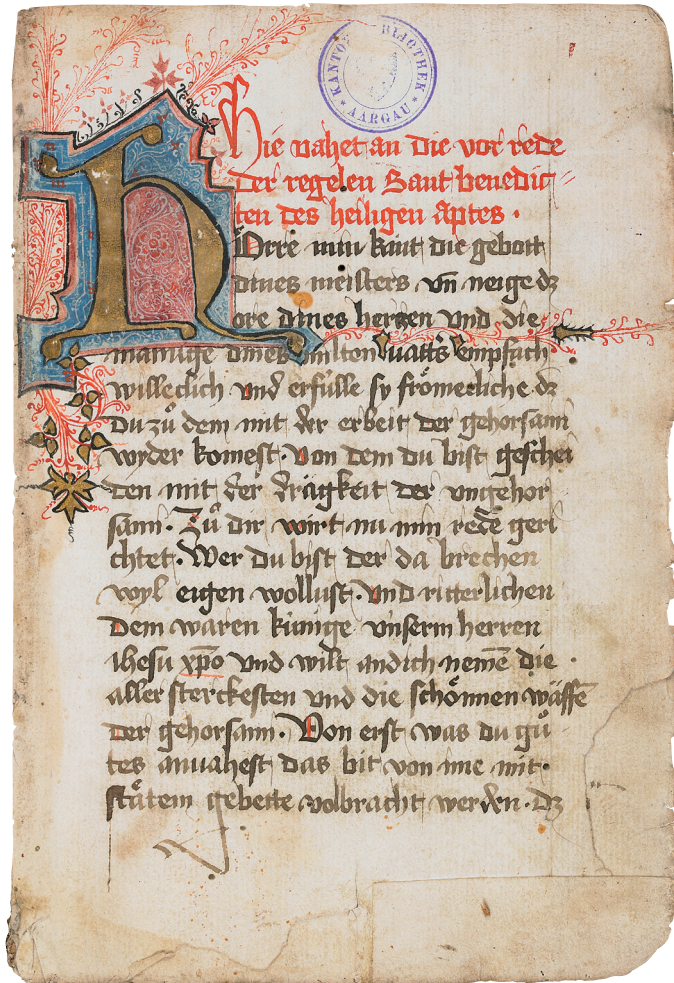 KANTONSBIBLIOTHEK
* AARGAU *
Hie vahet an die vor rede
der regelen Sant benedic
ten des heiligen aptes .
HOrre min kint die gebott
dines meisters vn̄ neige dz
ore dines herzen vnd die
manūge dines milten vatt's empfach
willeclich vnd erfülle sy frömecliche dz
du zů dem mit der erbeit der gehorsam
wyder komest . Von dem du bist geschei
den mit der drägkeit der vngehor
sam . Zů dir wirt nu min rede geri
chtet . Wer du bist der da brechen
wyl eigen wollust . vnd ritterlichen
Dem waren kúnige vnserm herren
ihesu xp̄o vnd wilt andich nemē die .
aller sterckesten vnd die schönnen wäffē
der gehorsam . Von erst was du gů
tes anvahest das bit von ime mit .
stätem gebette volbracht werden . dz